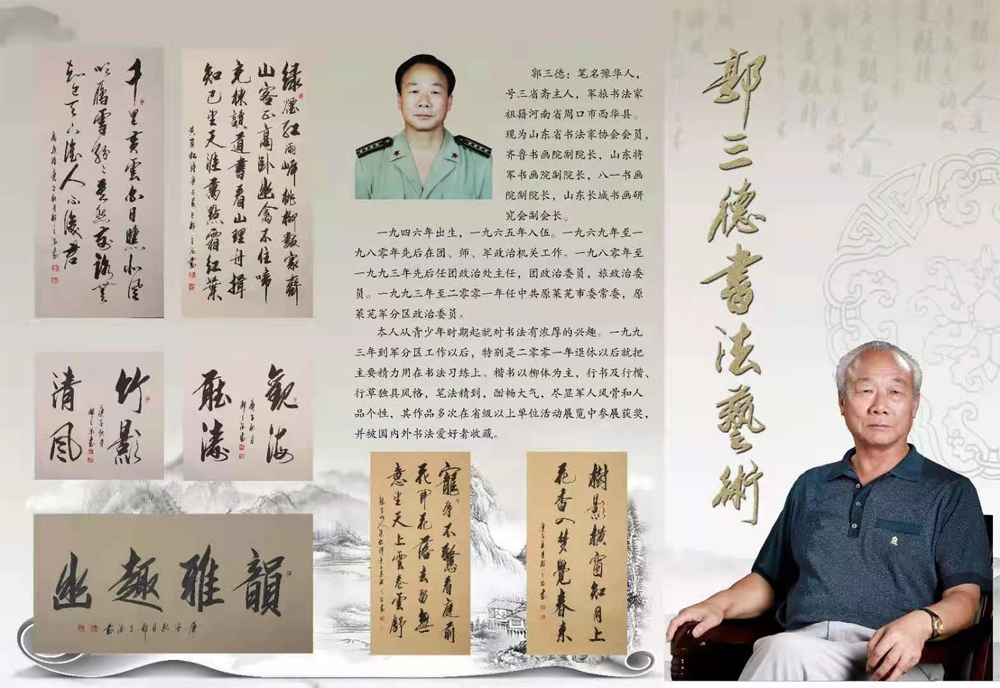 千里黃雲白日曛北風
吹雁雪紛紛莫愁前路無
知己天下誰人不識君
山客正高臥幽禽不住啼
知己
天涯萬點霜紅葉
竹影
清風
觀海
聽濤
韻雅趣幽
郭三德:笔名豫华人,
号三省斋主人,军旅书法家
祖籍河南省周口市西华县。
现为山东省书法家协会会员,
齐鲁书画院副院长,山东将
军书画院副院长,八一书画
院副院长,山东长城书画研
究会副会长。
一九四六年出生,一九六五年入伍。一九六九年至一
九八零年先后在团、师、军政治机关工作。一九八零年至
一九九三年先后任团政治处主任,团政治委员,旅政治委
员。一九九三年至二零零一年任中共原莱芜市委常委,原
莱芜军分区政治委员。
本人从青少年时期起就对书法有浓厚的兴趣。一九九
三年到军分区工作以后,特别是二零零一年退休以后就把
主要精力用在书法习练上。楷书以柳体为主,行书及行楷、
行草独具风格,笔法精到,酣畅大气,尽显军人风骨和人
品个性,其作品多次在省级以上单位活动展览中参展获奖,
并被国内外书法爱好者收藏。
寵辱不驚看庭前
花開花落去留無
意望天上雲卷雲舒
樹影橫窗知月上
花香入夢覺春來
郭三德書法藝術